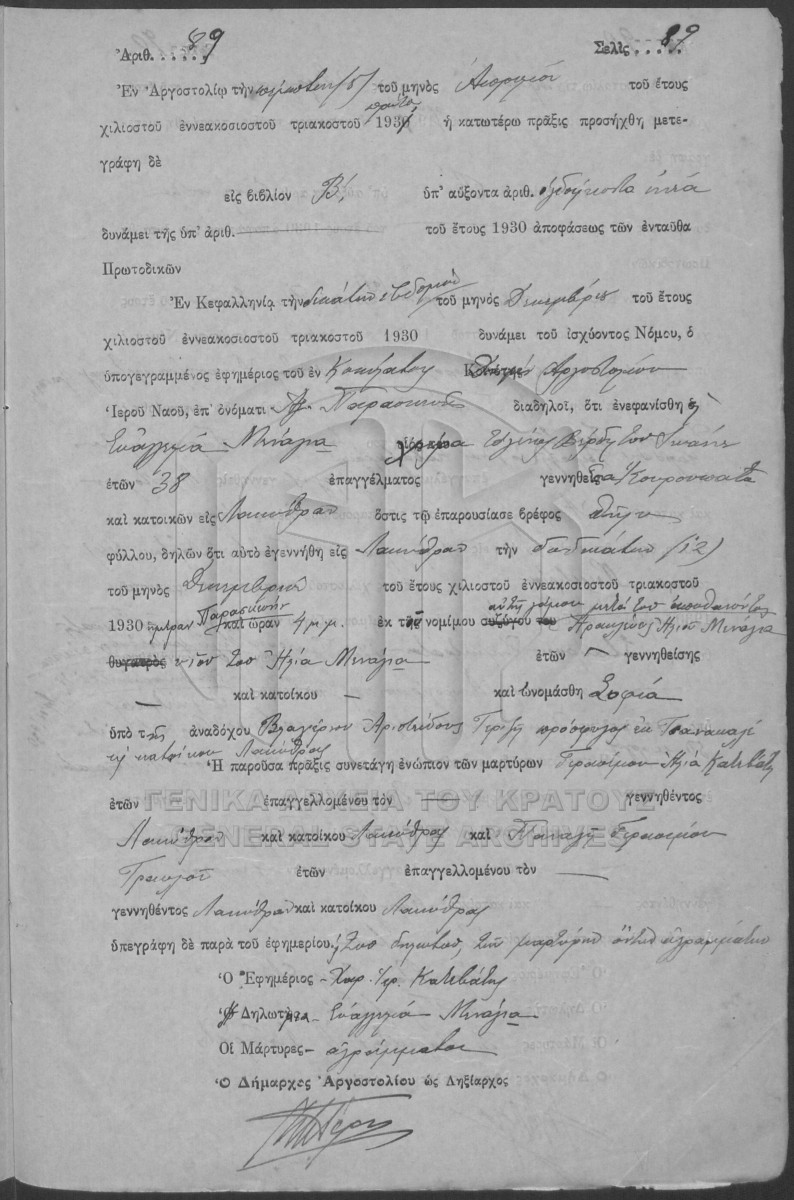 Ἀριθ. . . 89 Σελὶς . . 89
Ἐν Ἀργοστολίῳ τὴν πέμπτην (5) τοῦ μηνὸς τοῦ ἔτους
πρώτου
χιλιοστοῦ ἐννεακοσιοστοῦ τριακοστοῦ 1931 ἡ κατωτέρω πρᾶξις προσήχθη μετε-
γράφη δὲ
εἰς βιβλίον Β΄. ὑπ' αὔξοντα ἀριθ. ὀγδοήκοντα ἐννέα
δυνάμει τῆς ὑπ' ἀριθ. τοῦ ἔτους 1930 ἀποφάσεως τῶν ἐνταῦθα
Πρωτοδικῶν
Ἐν Κεφαλληνίᾳ τὴν δεκάτην ἑβδόμην τοῦ μηνὸς Δεκεμβρίου τοῦ ἔτους
χιλιοστοῦ ἐννεακοσιοστοῦ τριακοστοῦ 1930 δυνάμει τοῦ ἰσχύοντος Νόμου, ὁ
ὑπογεγραμμένος ἐφημέριος τοῦ ἐν Ἀργοστολίου
Ἱεροῦ Ναοῦ, ἐπ' ὀνόματι Ἁγ. Παρασκευῆς διαδηλοῖ, ὅτι ἐνεφανίσθη ἡ
Εὐαγγελία Μενάγια χήρα
ἐτῶν 38 ἐπαγγέλματος γεννηθεῖσα Κουρουκλάτα
καὶ κατοικῶν εἰς Λακύθραν ὅστις τῷ ἐπαρουσίασε βρέφος θήλυ
φύλλου, δηλῶν ὅτι αὐτὸ ἐγεννήθη εἰς Λακύθραν τὴν δωδεκάτην (12)
τοῦ μηνὸς Δεκεμβρίου τοῦ ἔτους χιλιοστοῦ ἐννεακοσιοστοῦ τριακοστοῦ
αὐτῆς γάμου μετὰ τοῦ ἀποθανόντος
1930 ἡμέραν Παρασκευὴν καὶ ὥραν 4 μ.μ. ἐκ τοῦ νομίμου συζύγου του Ἠλιοῦ Μενάγια
θυγατρὸς υἱοῦ τοῦ Ἠλία Μενάγια ἐτῶν — γεννηθείσης
— καὶ κατοίκου — καὶ ὠνομάσθη Σοφία
ὑπὸ τῆς ἀναδόχου Ἀριστείδους πρόσφυγος ἐκ Τσανακαλὲ
κατοίκου Λακύθρας
Ἡ παροῦσα πρᾶξις συνετάγη ἐνώπιον τῶν μαρτύρων Γερασίμου Ἠλία Κατεβάτη
ἐτῶν ἐπαγγελλομένου τὸν — γεννηθέντος
Λακύθραν καὶ κατοίκου Λακύθρας καὶ Παναγῆ Γερασίμου
Τραυλοῦ ἐτῶν ἐπαγγελλομένου τὸν —
γεννηθέντος Λακύθραν καὶ κατοίκου Λακύθρας
ὑπεγράφη δὲ παρὰ τοῦ ἐφημερίου, τοῦ δηλωτοῦ, τῶν μαρτύρων ὄντων ἀγραμμάτων
Ὁ Ἐφημέριος – Χαρ. Γερ. Κατεβάτης
Ἡ Δηλωτ Εὐαγγελία Μενάγια
Οἱ Μάρτυρες – ἀγράμματοι
Ὁ Δήμαρχος Ἀργοστολίου ὡς Ληξίαρχος
ΓΕΝΙΚΑ ΑΡΧΕΙΑ ΤΟΥ ΚΡΑΤΟΥΣ
GENERAL STATE ARCHIVES